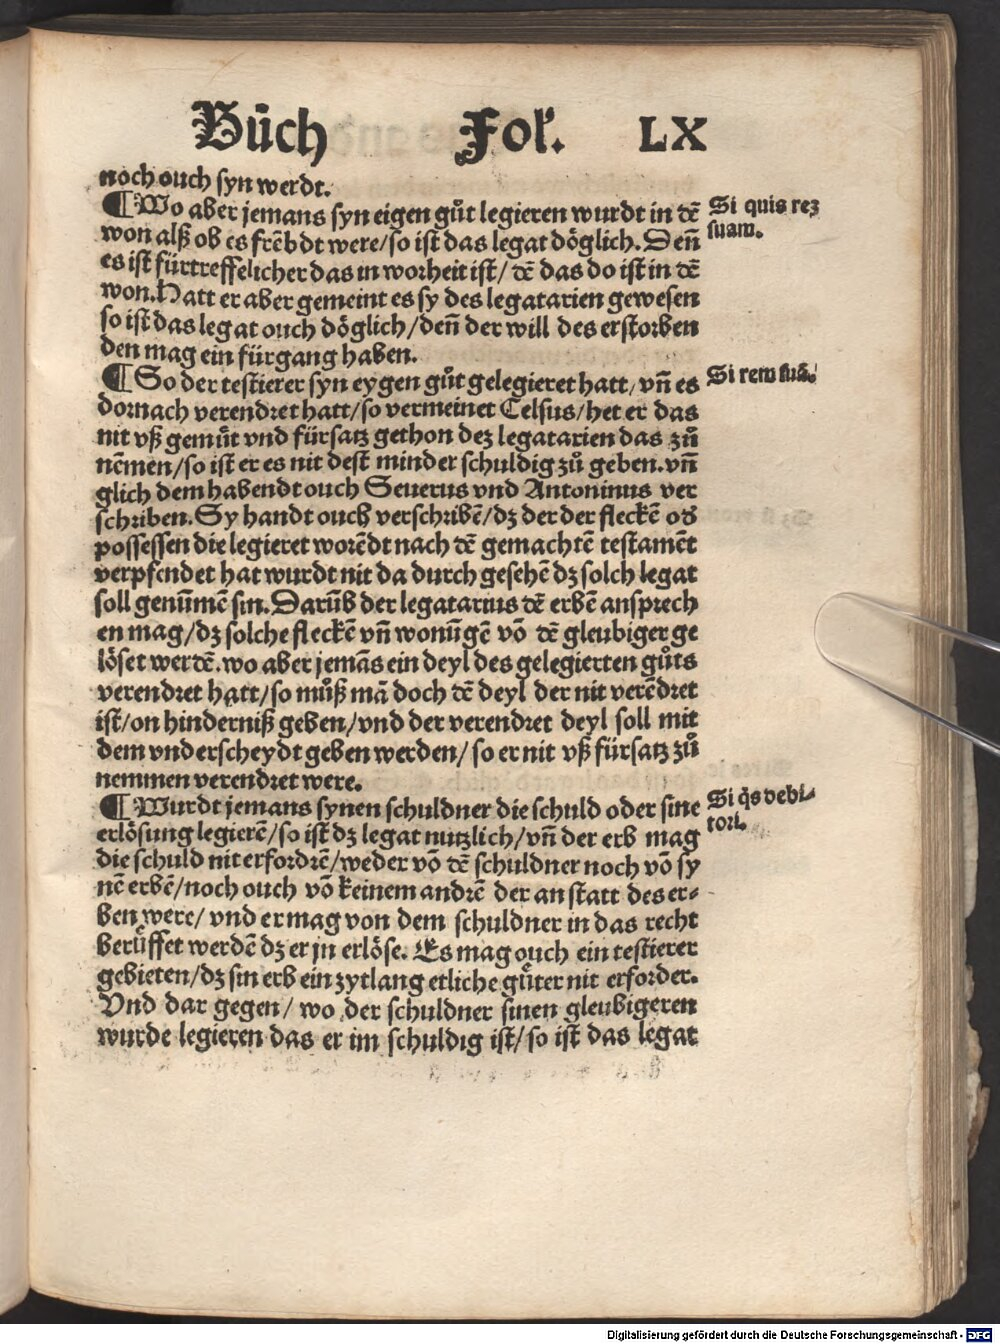 Bůch Fol. LX
noch ouch syn werdt.
¶ Wo aber jemans syn eigen gůt legieren wurdt in dē
Si quis rez
won alß ob es frēbdt were/so ist das legat döglich. Deñ
suam.
es ist fürtreffelicher das in worheit ist/ dē das do ist in dē
won. Hatt er aber gemeint es sy des legatarien gewesen
so ist das legat ouch döglich/deñ der will des erstorben
den mag ein fürgang haben.
¶ So der testierer syn eygen gůt gelegieret hatt/ vñ es
Si rem suā.
dornach verendret hatt/so vermeinet Celsus/het er das
nit vß gemůt vnd fürsatz gethon dez legatarien das zů
nēmen/so ist er es nit dest minder schuldig zů geben. vñ
glich dem habendt ouch Seuerus vnd Antoninus ver
schriben. Sy handt ouch verschribē/dz der der fleckē od
possessen die legieret worēdt nach dē gemachtē testamēt
verpfendet hat wurdt nit da durch gesehē dz solch legat
soll genūmē sin. Darūb der legatarius dē erbē ansprech
en mag/dz solche fleckē vñ wonūgē vō dē gleubiger ge
löset werdē. wo aber jemās ein deyl des gelegierten gůts
verendret hatt/so můß mā doch dē deyl der nit verēdret
ist/on hinderniß geben/vnd der verendret deyl soll mit
dem vnderscheydt geben werden/so er nit vß fürsatz zů
nemmen verendret were.
¶ Wurdt jemans synen schuldner die schuld oder sine
Si q̄s debi-
erlösung legierē/so ist dz legat nutzlich/vñ der erb mag
tori.
die schuld nit erfordrē/weder vō dē schuldner noch vō sy
nē erbē/noch ouch vō keinem andrē der an statt des er-
ben were/ vnd er mag von dem schuldner in das recht
berůffet werdē dz er jn erlöse. Es mag ouch ein testierer
gebieten/dz sin erb ein zytlang etliche gůter nit erforder.
Vnd dar gegen/ wo der schuldner sinen gleubigeren
wurde legieren das er im schuldig ist/so ist das legat
Digitalisierung gefördert durch die Deutsche Forschungsgemeinschaft - DFG